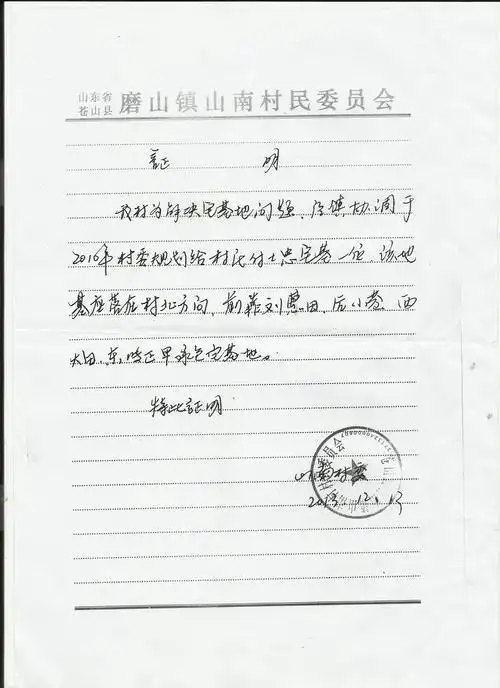 山东省
苍山县 磨山镇山南村民委员会
証 明
我村为解决宅基地问题,经镇协调于
2010年村委规划给村民付士忠宅基一位 该地
基座落在村北方向,前靠刘 田,后小巷 西
大田、东 正早承包宅基地。
特此証明
山南村委
2013.12.13